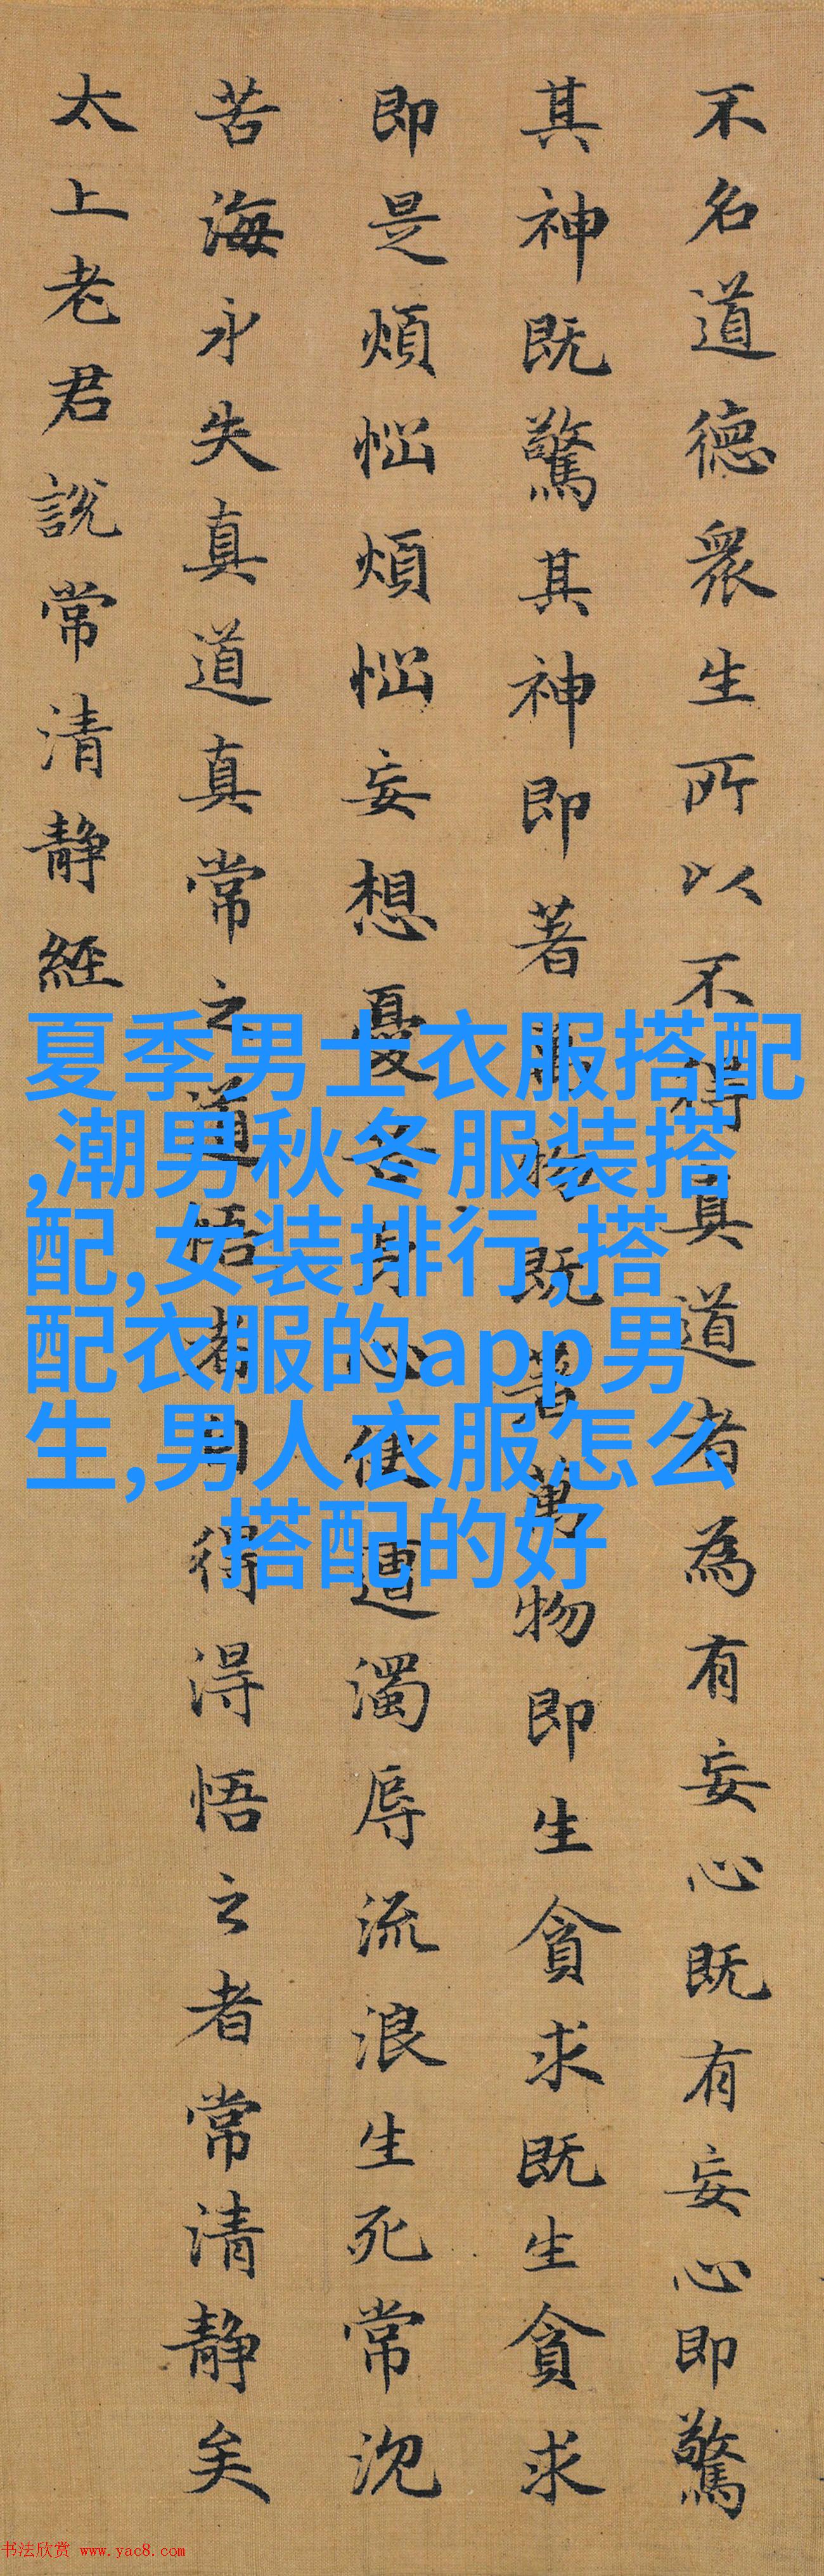 不名道德衆生所以不得真道者為有妄心既有妄心即驚
其神既驚其神即著萬物既著萬物即生貪求既生貪求
即是煩惱煩惱妄想憂苦身心便遭濁辱流浪生死常沉
苦海永失真道真常之道悟者自得得悟之者常清靜矣
太上老君說常清靜經
夏季男士衣服搭配
,潮男秋冬服装搭
配,女装排行,搭
配衣服的app男
生,男人衣服怎么
搭配的好
书法欣赏 www.yac8.com